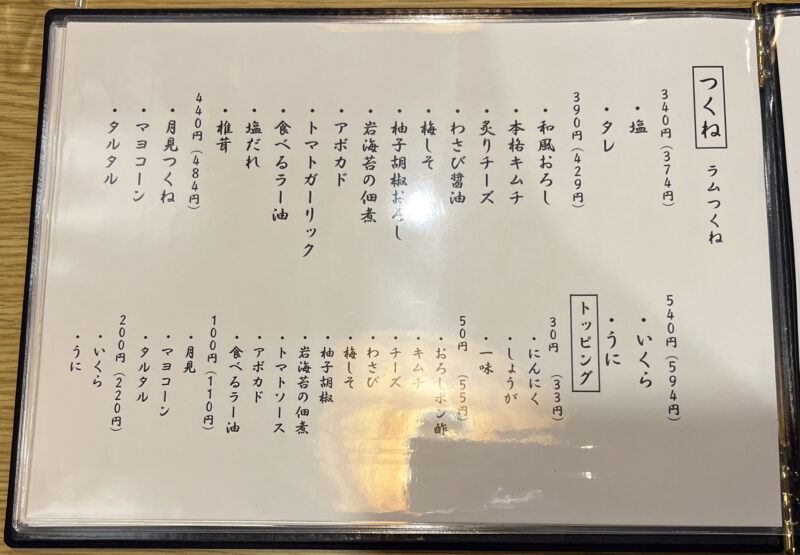 つくね ラムつくね
340円(374円)
・塩
・タレ
390円(429円)
・和風おろし
・本格キムチ
・炙りチーズ
・わさび醤油
・梅しそ
・柚子胡椒おろし
・岩海苔の佃煮
・アボカド
・トマトガーリック
・食べるラー油
・塩だれ
・椎茸
440円(484円)
・月見つくね
・マヨコーン
・タルタル
540円(594円)
・いくら
・うに
トッピング
30円(33円)
・にんにく
・しょうが
・一味
50円(55円)
・おろしポン酢
・キムチ
・チーズ
・わさび
・梅しそ
・柚子胡椒
・岩海苔の佃煮
・トマトソース
・アボカド
・食べるラー油
100円(110円)
・月見
・マヨコーン
・タルタル
200円(220円)
・いくら
・うに